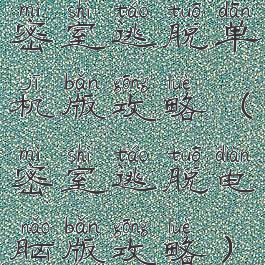 mì shì táo tuō dān
密室逃脱单
jī bǎn gōng lüè
机版攻略（
mì shì táo tuō diàn
密室逃脱电
nǎo bǎn gōng lüè
脑版攻略）